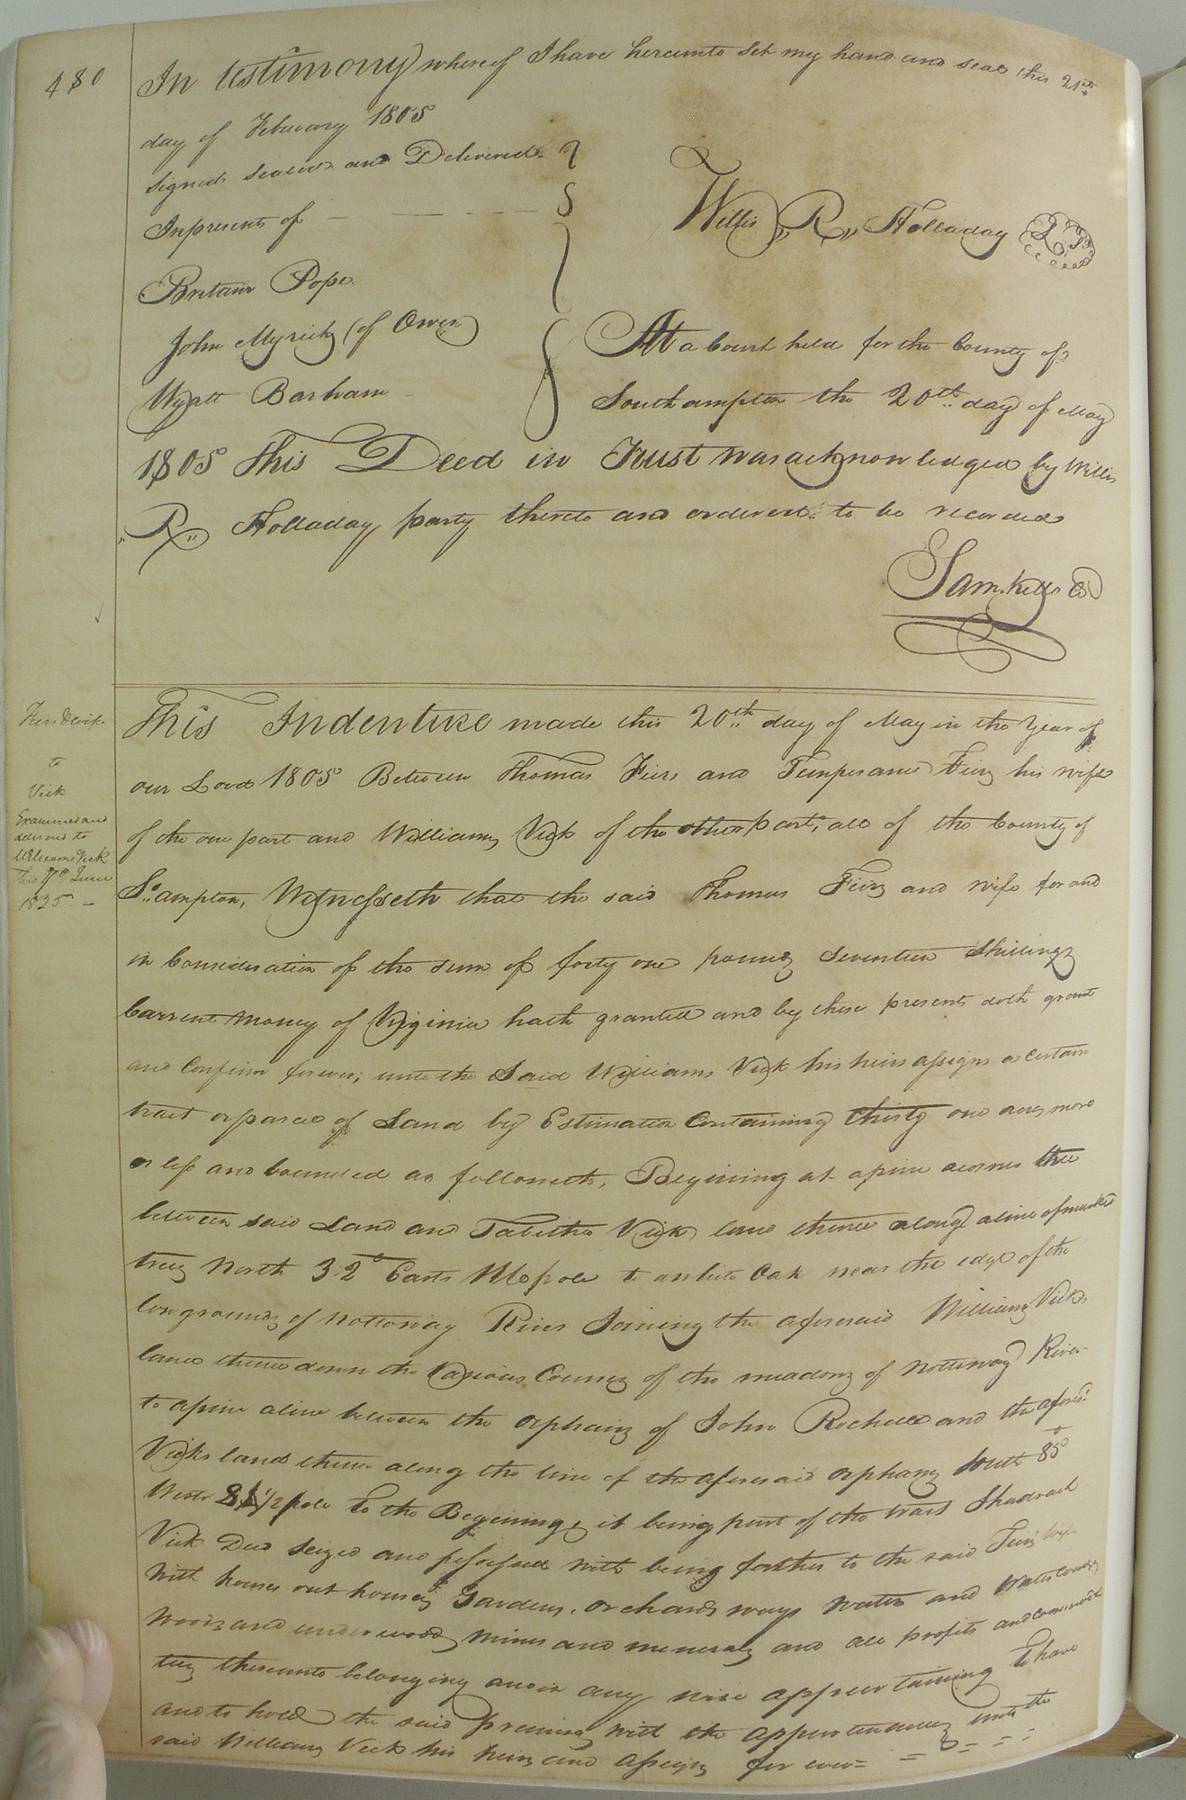 480
In testimony whereof I have hereunto set my hand and seal this 21st
day of February 1805
signed sealed and Delivered
Inpresents of
Britain Pope
John Myrick (of Owen)
Wyatt Barham
Willis "R" Holladay L.S.
At a Court held for the County of
Southampton the 20th day of May
1805 This Deed in Trust was acknowledged by Willis
"R" Holladay party thereto and ordered to be recorded
Sam. Kello
to
Vick
Examined and
delivered to
Williams Vick
June
1825
This Indenture made this 20th day of May in the Year of
our Lord 1805 Between Thomas and Temperance his wife
of the one part and Williams Vick of the other part, all of the County of
So:ampton, Witnesseth that the said Thomas and wife for and
in Consideration of the sum of forty one pounds Seventeen Shillings
Current Money of Virginia hath granted and by these presents doth grant
and Confirm forever, unto the Said Williams Vick his heirs assigns a certain
tract or parcel of Land by Estimation Containing thirty one acres more
or less and bounded as followeth, Begining at a pine a corner tree
between said Land and Tabitha Vicks land thence along a line of marked
trees North 32° East pole to a white Oak near the edge of the
low grounds of Nottoway River Joining the aforesaid Williams Vicks
land thence down the Various Courses of the meadows of Nottoway River
to a pine a line between the orphans of John Rochell and the aforesd.
Vicks land thence along the line of the aforesaid orphans South 85°
West 1/2 pole to the Begining, it being part of the tract Shadrach
Vick Died Seized and possessed with being farther to the said wife
With houses out houses, Gardens, orchards ways water and Watercourses
Woods and underwoods mines and minerals and all profits and commodi
ties thereunto belonging and in any wise appertaining To have
and to hold the said premises with the appurtenances unto the
said Williams Vick his heirs and assigns for ever